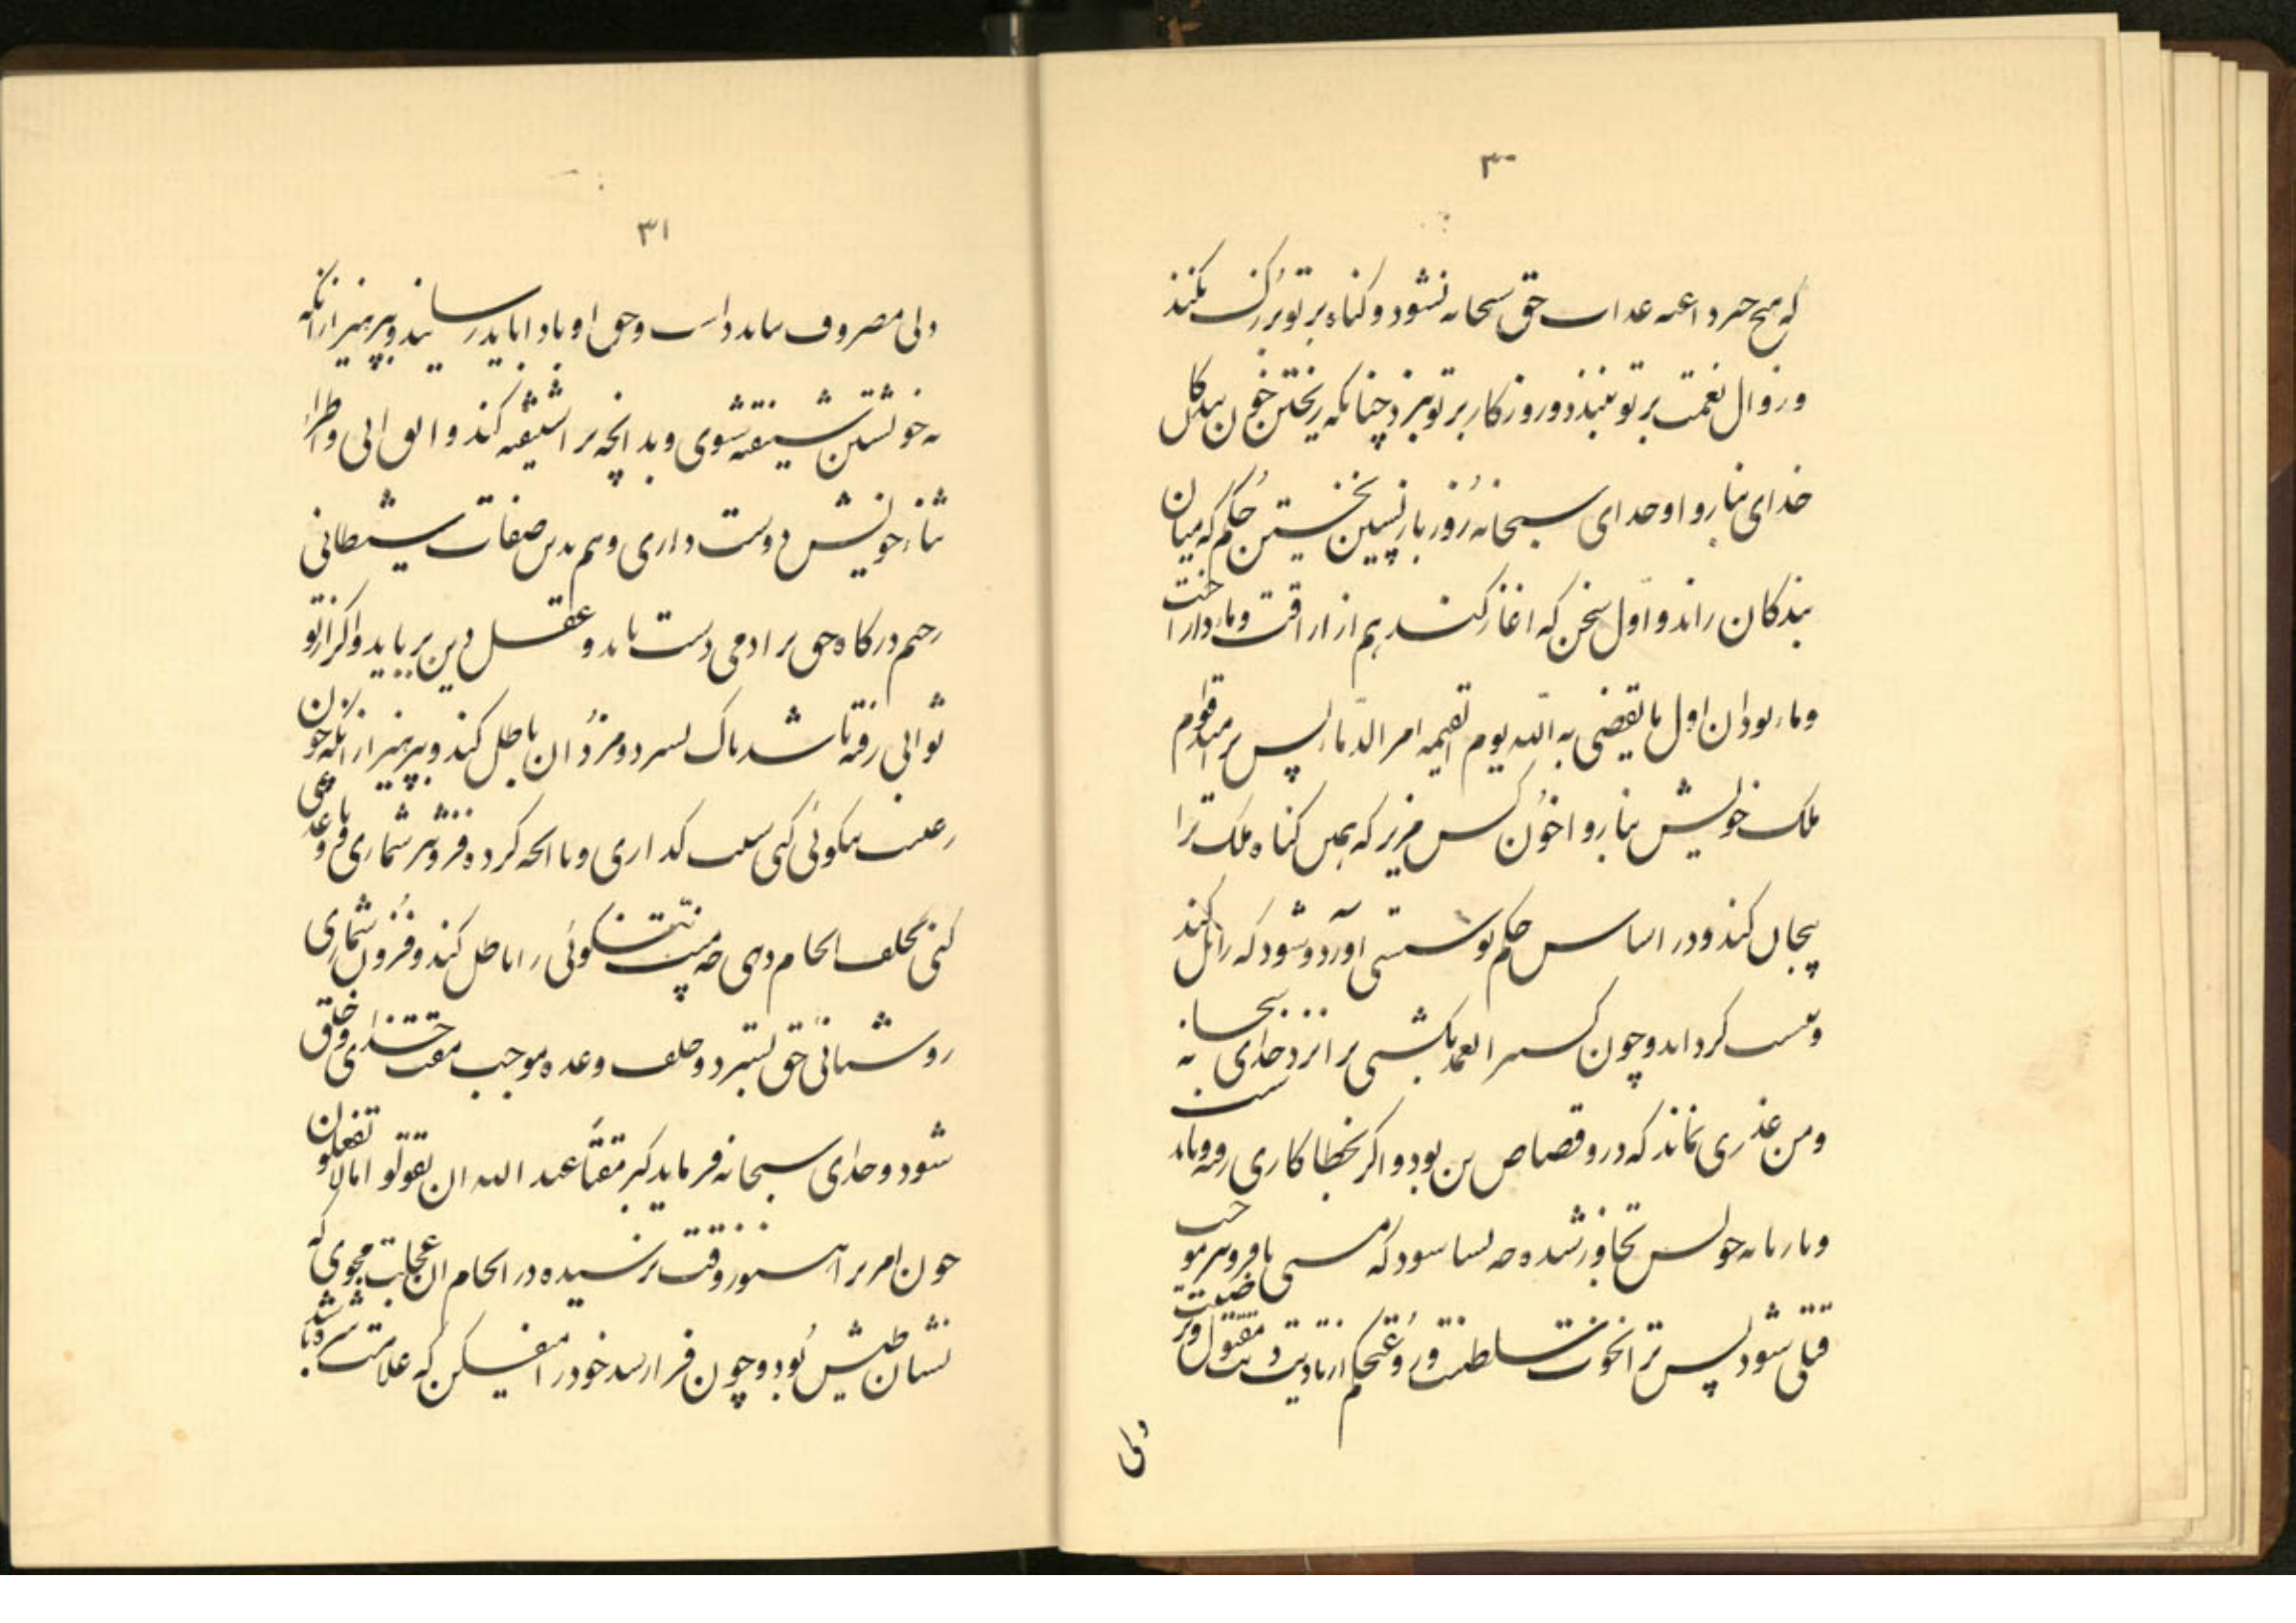 ۳۰
که هیچ چیز داعیه عذاب حق سبحانه نشود و گناه بر تو بزرگ نکند
و زوال نعمت بر تو نبندد و روزگار بر تو نبرد چنانکه ریختن خون بندگان
خدای بناروا و خدای سبحانه روز بازپسین نخستین حکم که میان
بندگان راند و اول سخن که اغاز کند هم از اراقت دماء
دماء بود ان اول ما یقضی به الله یوم القیمه امر الدماء پس بر امید قوام
ملک خویش بناروا خون کس مریز که همین گناه ملک ترا
بیجان کند و در اساس حکم تو سستی آورد و شود که زائل کند
و پست گرداند و چون کسیرا بعمد بکشی ترا نزد خدای سبحانه
و من عذری نماند که درو قصاص بدن بود و اگر بخطا کاری رفته
و تازیانه چوبش تجاوز شده چه بسا شود که مشتی یا فروتر موجب
قتلی شود پس ترا نخوت سلطنت و رؤعت حکم از تادیت دیت مقتول
دلی
۳۱
دلی مصروف نباید داشت و حق او باو اباید رسانید و بپرهیز ازانکه
به خویشتن شیفته شوی و بدانچه ترا شیفته کند واثق ائی و اطراء
ثناء خویش دوست داری و هم بدین صفات شیطانی
رجیم درگاه حق بر ادمی دست یابد و عقل و دین برباید و اگر از تو
ثوابی رفته باشد پاک بسترد و مزد ان باطل کند و بپرهیز ازانکه چون
رعیت نیکوئی کنی منت گذاری و یا انچه کرده فزونتر شماری و یا وعدتی
کنی بخلف انجام دهی چه منت نیکوئی را باطل کند و فزون شماری
روشنائی حق بسترد و خلف وعده موجب مقت خدای و خلق
شود و خدای سبحانه فرماید کبر مقتاً عند الله ان تقولوا مالا تفعلون
چون امر ترا هنوز وقت نرسیده در انجام ان عجلت مجوی که
نشان طیش بود و چون فرا رسد خود را میفکن که علامت